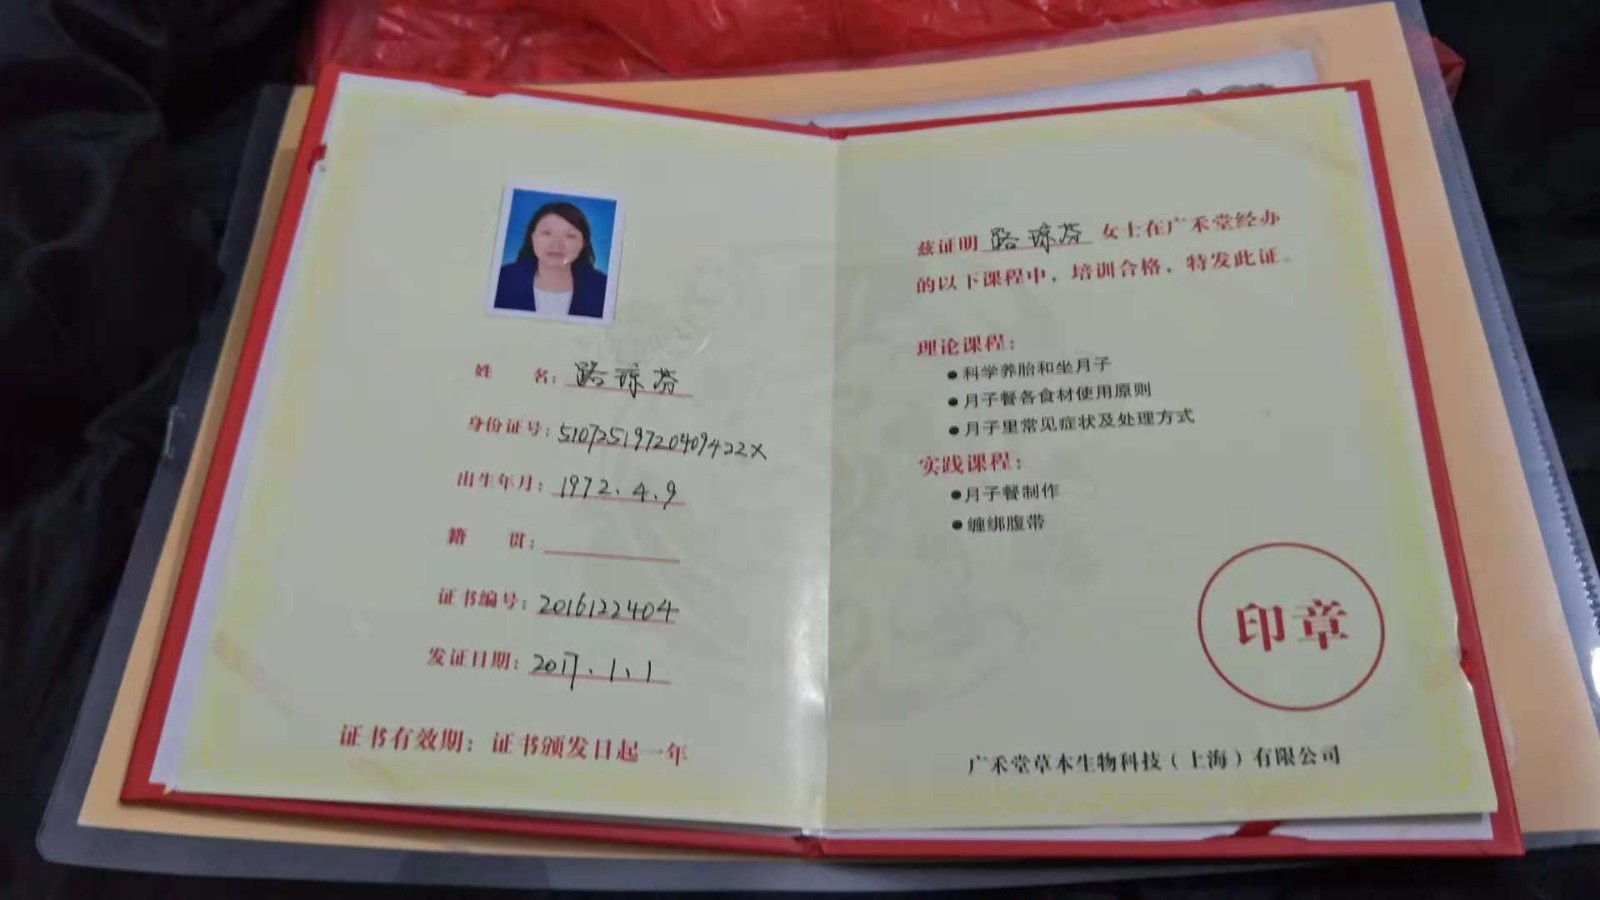 姓 名：路琼芬
身份证号：51072519720409422X
出生年月：1972.4.9
籍 贯：
证书编号：2016122404
发证日期：2017.1.1
证书有效期：证书颁发日起一年
兹证明 路琼芬 女士在广禾堂经办
的以下课程中，培训合格，特发此证。
理论课程：
●科学养胎和坐月子
●月子餐各食材使用原则
●月子里常见症状及处理方式
实践课程：
●月子餐制作
●缠绑腹带
印章
广禾堂草本生物科技（上海）有限公司